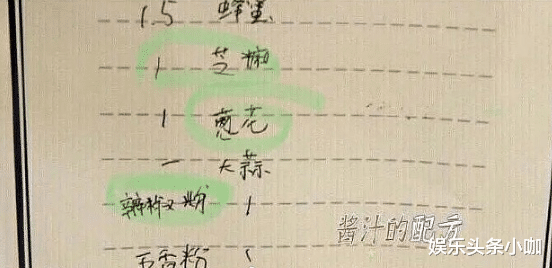 1.5 蜂蜜
1 芝
1 蔥花
一 大蒜
辣椒粉 1
酱汁的配方
五香粉 1
娱乐头条小咖